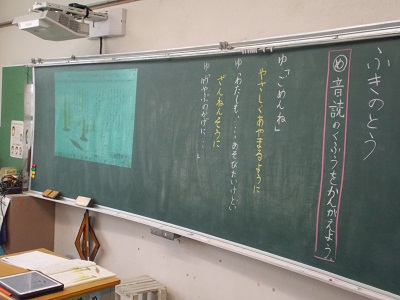 ふきのとう
め 音読のくふうをかんがえよう。
ゆ「ごめんね」
やさしくあやまるように
ゆ「わたしも、・・・あそびたいけど」
ざんねんそうに